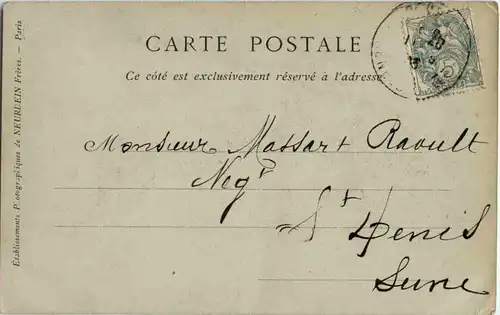 CARTE POSTALE
Ce côté est exclusivement réservé à l'adresse
Monsieur Massart Raoult
Négt
St Denis
Seine
Établissements Photographiques de NEURDEIN Frères. — Paris
5